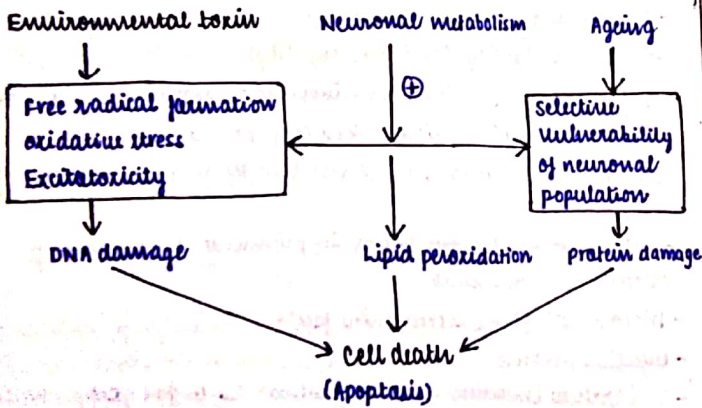 Environmental toxin Neuronal metabolism Ageing
⊕
Free radical formation
oxidative stress
Excitatoxicity
Selective
vulnerability
of neuronal
population
DNA damage Lipid peroxidation Protein damage
Cell death
(Apoptosis)